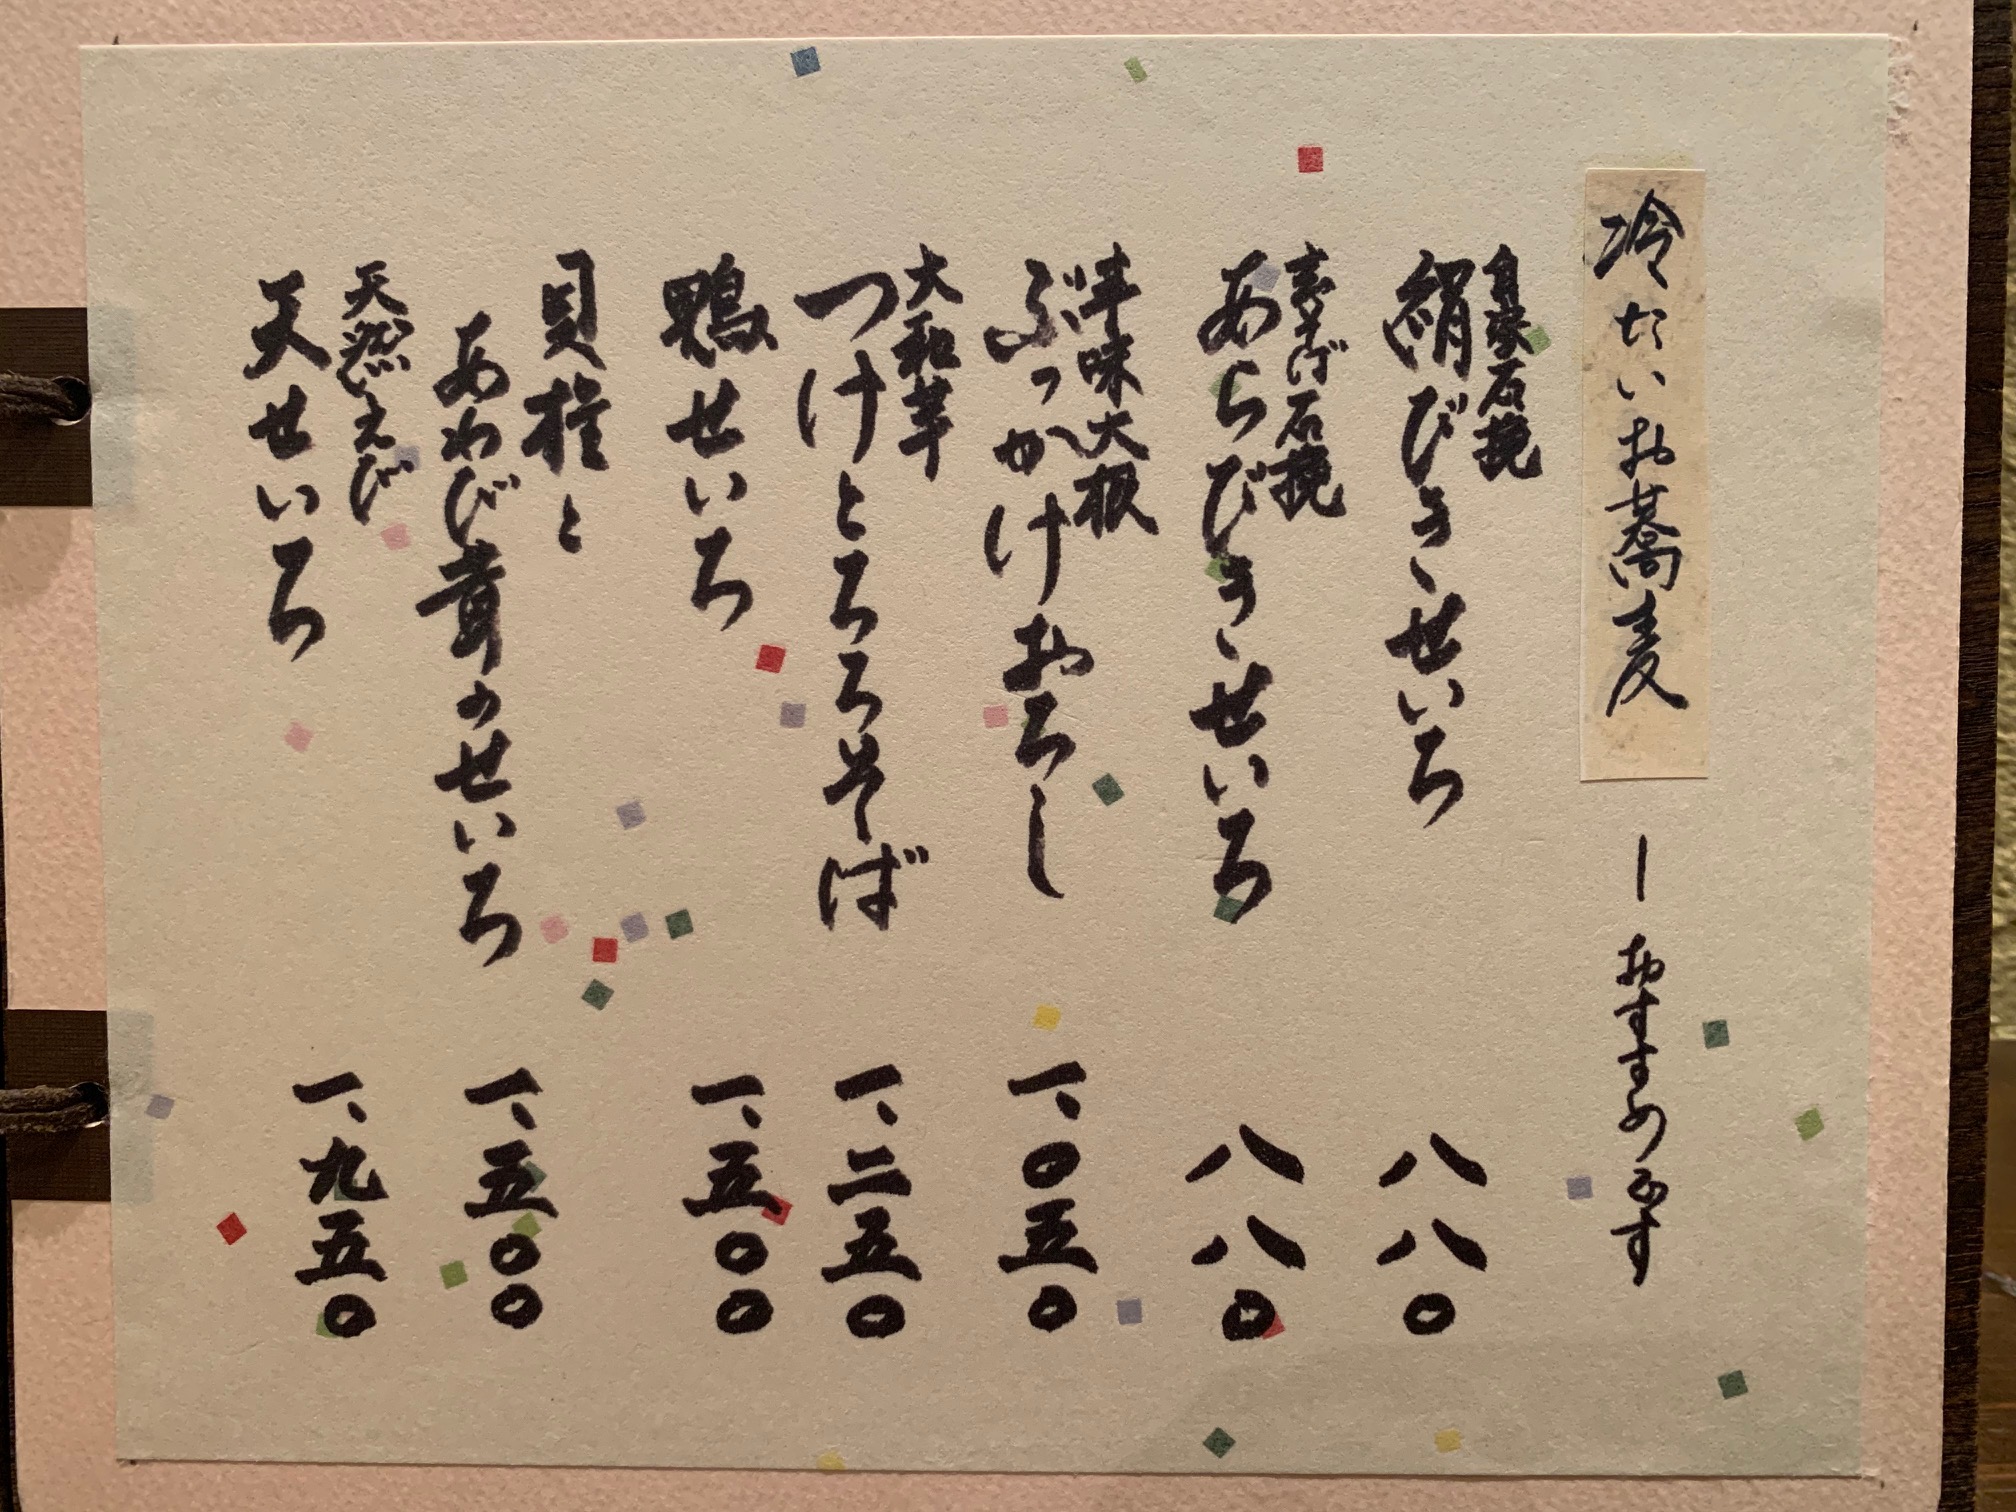 冷たいお蕎麦
ーおすすめです
自家石挽
絹びき せいろ
八八〇
玄そば石挽
あらびき せいろ
八八〇
辛味大根
ぶっかけおろし
一、〇五〇
大和芋
つけとろろそば
一、二五〇
鴨せいろ
一、五〇〇
貝柱と
あわび茸のせいろ
一、五〇〇
天然えび
天せいろ
一、九五〇